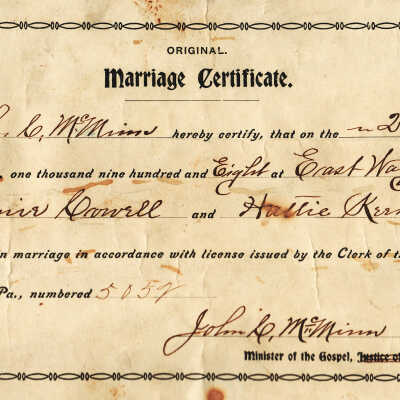 ORIGINAL.
Marriage Certificate.
C. McMinn hereby certify, that on the
, one thousand nine hundred and Eight at East
Cowell and Hattie
in marriage in accordance with license issued by the Clerk of
Pa., numbered 5059
John C. McMinn
Minister of the Gospel, Justice of